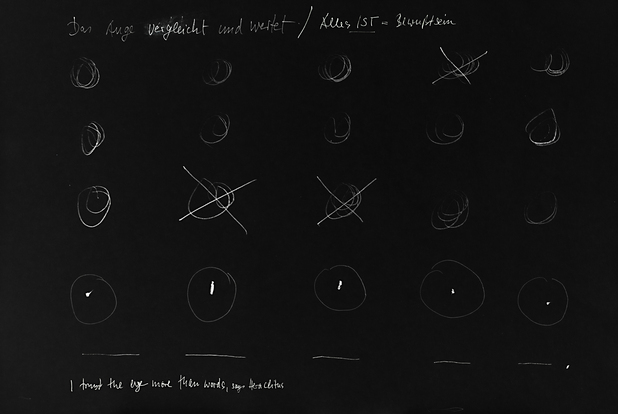 Das Auge vergleicht und wertet / Alles IST = Bewußtsein
I trust the eye more than words, says Heraclitus